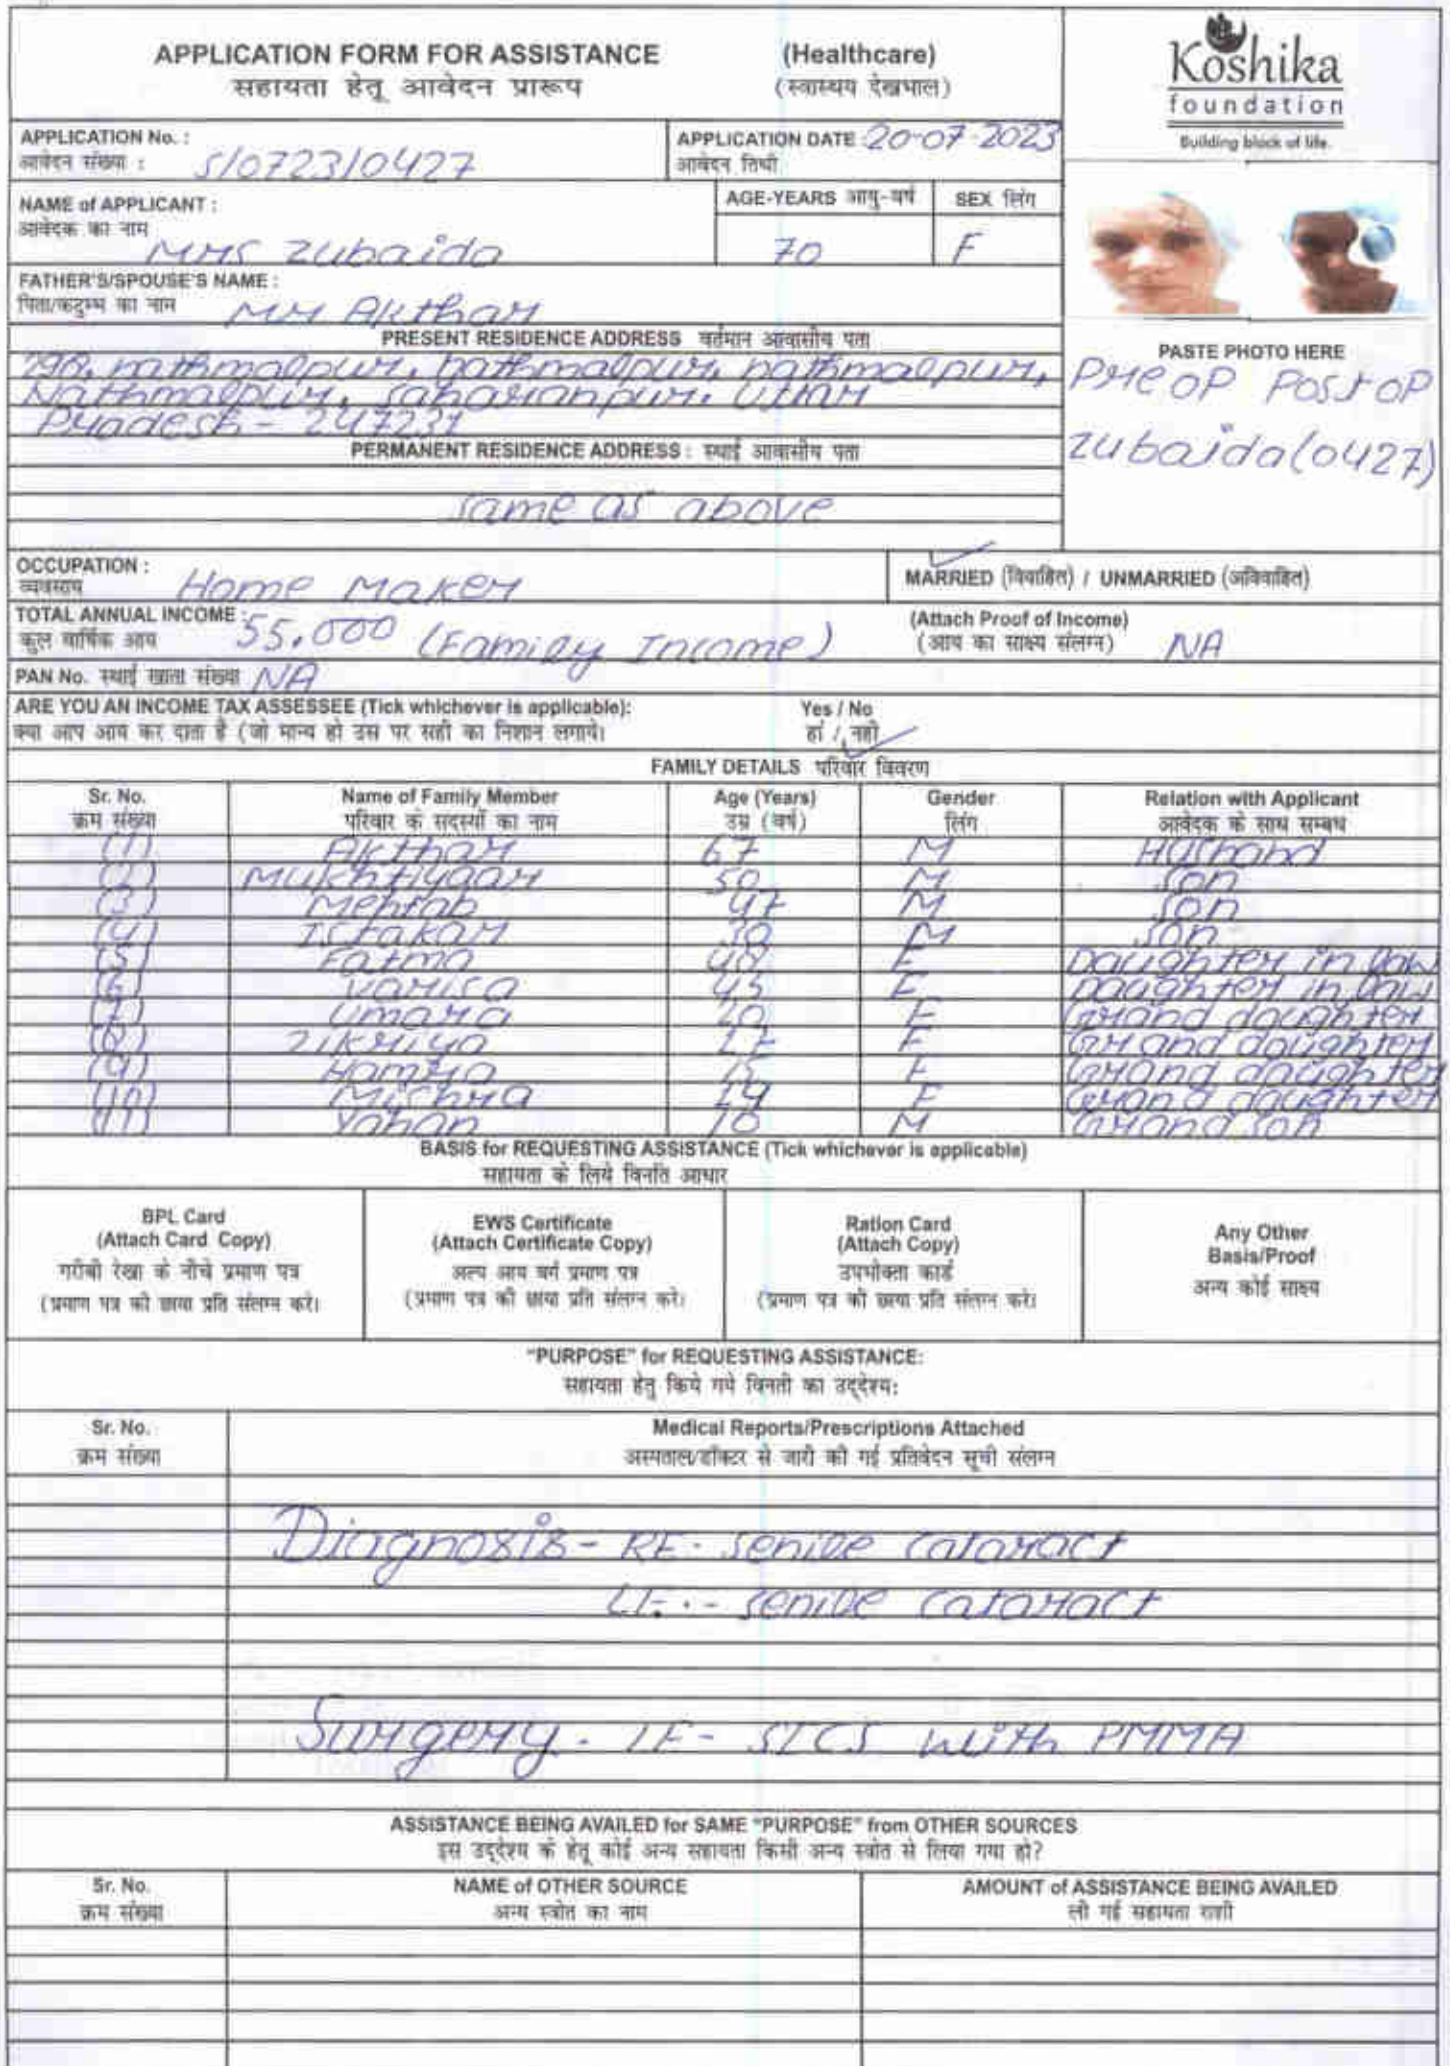 APPLICATION FORM FOR ASSISTANCE (Healthcare)
सहायता हेतू आवेदन प्रारूप (स्वास्थय देखभाल)
Koshika
foundation
Building block of life.
APPLICATION No. : S/0723/0427
आवेदन संख्या :
APPLICATION DATE : 20-07-2023
आवेदन तिथी
NAME of APPLICANT :
आवेदक का नाम
Mrs Zubaida
AGE-YEARS आयु-वर्ष
70
SEX लिंग
F
FATHER'S/SPOUSE'S NAME :
पिता/कटुम्ब का नाम Mr Akthar
PRESENT RESIDENCE ADDRESS वर्तमान आवासीय पता
nathmalpur, nathmalpur, nathmalpur,
Nathmalpur, Saharanpur, Uttar
Pradesh - 247231
PERMANENT RESIDENCE ADDRESS : स्थाई आवासीय पता
same as above
PASTE PHOTO HERE
Pre OP Post OP
Zubaida (0427)
OCCUPATION :
व्यवसाय Home Maker
MARRIED (विवाहित) / UNMARRIED (अविवाहित)
TOTAL ANNUAL INCOME :
कुल वार्षिक आय 55,000 (Family Income)
(Attach Proof of Income)
(आय का साक्ष्य संलग्न) NA
PAN No. स्थाई खाता संख्या NA
ARE YOU AN INCOME TAX ASSESSEE (Tick whichever is applicable): Yes / No
क्या आप आय कर दाता है (जो मान्य हो उस पर सही का निशान लगाये। हां / नही
FAMILY DETAILS परिवार विवरण
Sr. No. Name of Family Member Age (Years) Gender Relation with Applicant
क्रम संख्या परिवार के सदस्यों का नाम उम्र (वर्ष) लिंग आवेदक के साथ सम्बध
(1) Akthar 67 M Husband
(2) Mukhtiyaar 50 M Son
(3) Mehtab 47 M Son
(4) Istakar M Son
(5) Fatma 48 F Daughter in law
(6) Varisa 45 F Daughter in law
(7) Umara 20 F Grand daughter
(8) Zikriya F Grand daughter
(9) F Grand daughter
(10) Mishra 14 F Grand daughter
(11) 10 M Grand son
BASIS for REQUESTING ASSISTANCE (Tick whichever is applicable)
सहायता के लिये विनति आधार
BPL Card
(Attach Card Copy)
गरीबी रेखा के नीचे प्रमाण पत्र
(प्रमाण पत्र की छाया प्रति संलग्न करे।
EWS Certificate
(Attach Certificate Copy)
अल्प आय वर्ग प्रमाण पत्र
(प्रमाण पत्र की छाया प्रति संलग्न करे।
Ration Card
(Attach Copy)
उपभोक्ता कार्ड
(प्रमाण पत्र की छाया प्रति संलग्न करे।
Any Other
Basis/Proof
अन्य कोई साक्ष्य
"PURPOSE" for REQUESTING ASSISTANCE:
सहायता हेतु किये गये विनती का उद्देश्य:
Sr. No. Medical Reports/Prescriptions Attached
क्रम संख्या अस्पताल/डॉक्टर से जारी की गई प्रतिवेदन सूची संलग्न
Diagnosis - RE - Senile Cataract
LE - Senile Cataract
Surgery - LE - SICS with PMMA
ASSISTANCE BEING AVAILED for SAME "PURPOSE" from OTHER SOURCES
इस उद्देश्य के हेतू कोई अन्य सहायता किसी अन्य स्त्रोत से लिया गया हो?
Sr. No. NAME of OTHER SOURCE AMOUNT of ASSISTANCE BEING AVAILED
क्रम संख्या अन्य स्त्रोत का नाम ली गई सहायता राशी